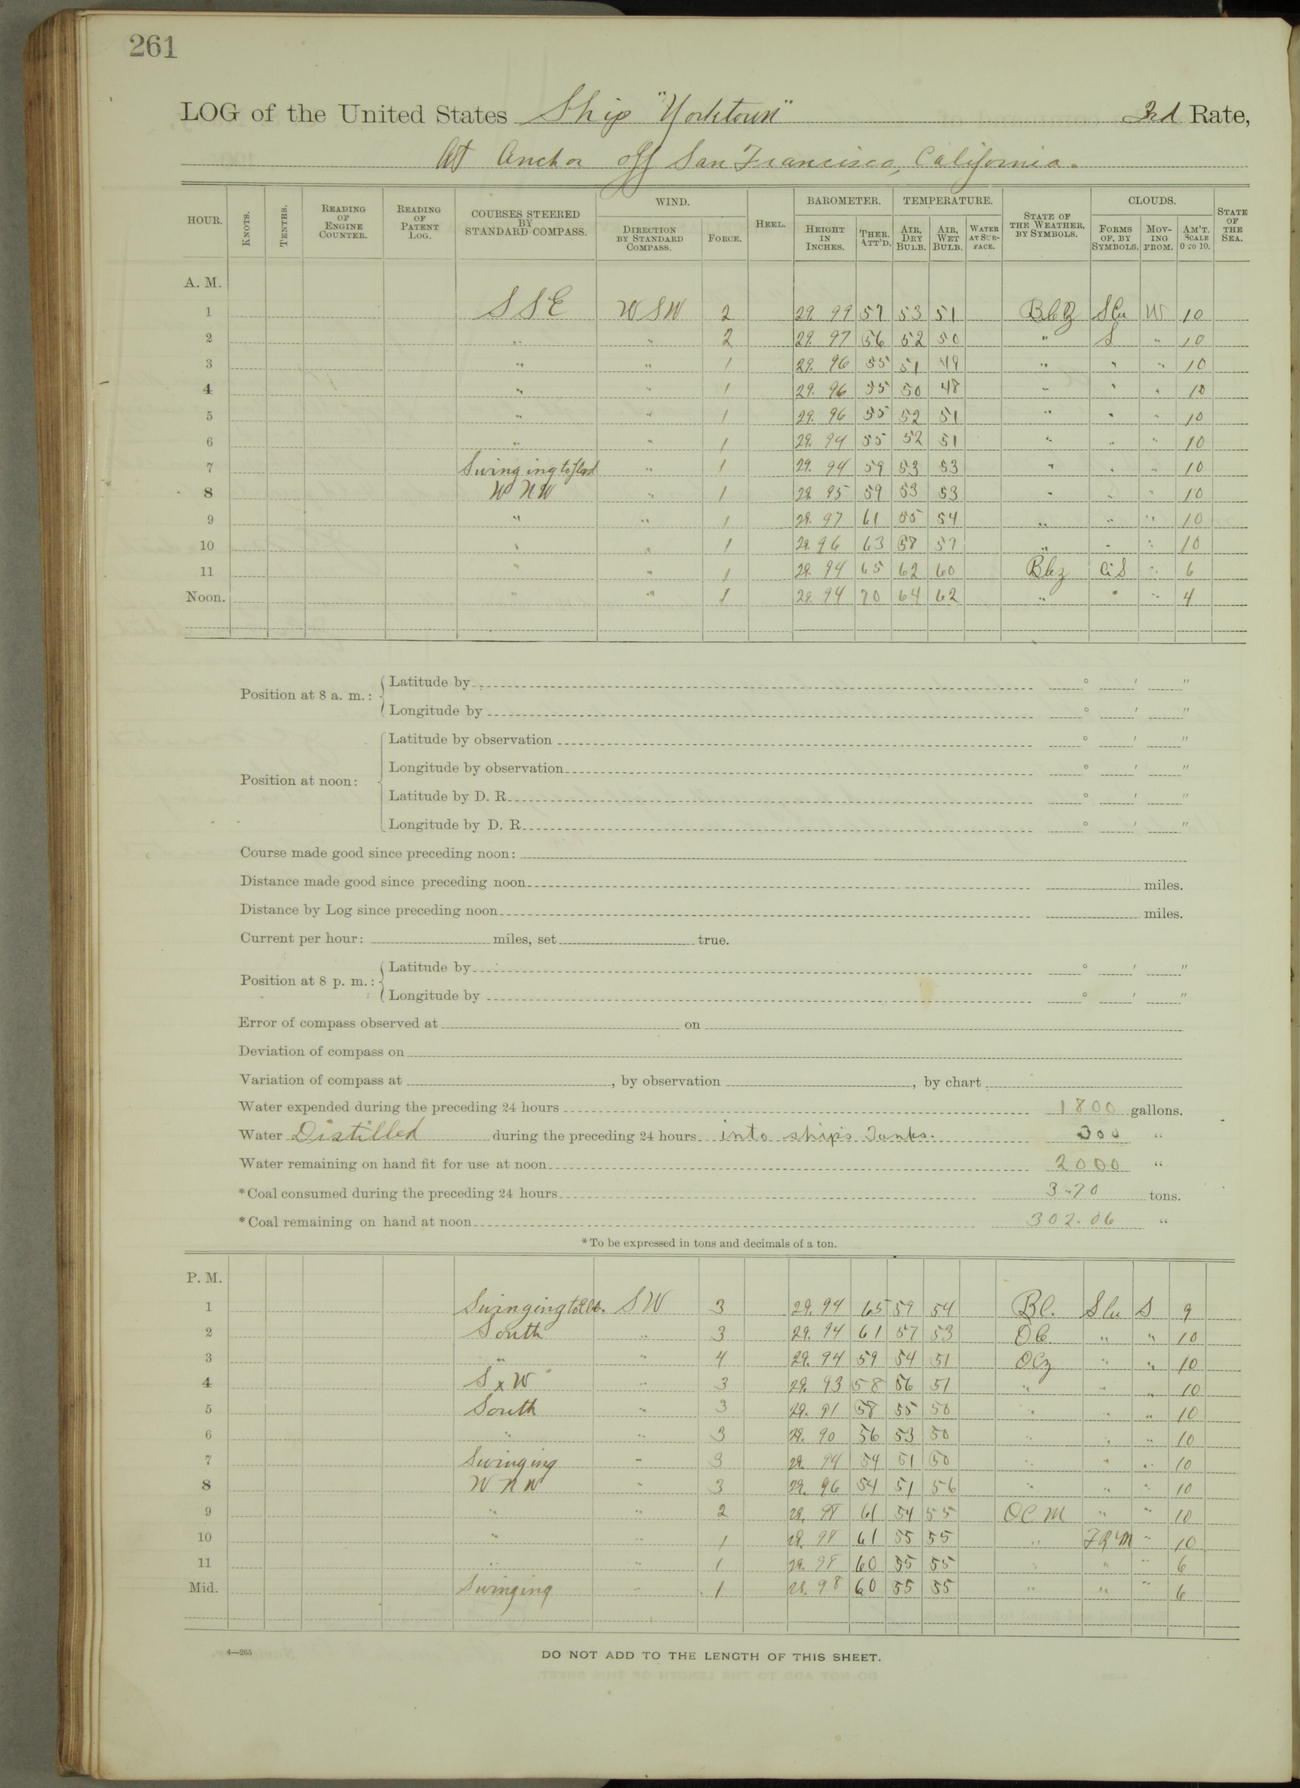 261
LOG of the United States Ship "Yorktown" 3rd Rate,
At Anchor off San Francisco, California.
HOUR. KNOTS. TENTHS. READING OF ENGINE COUNTER. READING OF PATENT LOG. COURSES STEERED BY STANDARD COMPASS. WIND. DIRECTION BY STANDARD COMPASS. FORCE. HEEL. BAROMETER. HEIGHT IN INCHES. THER. ATT'D. TEMPERATURE. AIR, DRY BULB. AIR, WET BULB. WATER AT SURFACE. STATE OF THE WEATHER, BY SYMBOLS. CLOUDS. FORMS OF, BY SYMBOLS. MOVING FROM. AM'T. SCALE 0 TO 10. STATE OF THE SEA.
A. M.
1 SSE WSW 2 29.99 57 53 51 S Cu W 10
2 " " 2 29.97 56 52 50 " S " 10
3 " " 1 29.96 55 51 49 " " " 10
4 " " 1 29.96 55 50 48 " " " 10
5 " " 1 29.96 55 52 51 " " " 10
6 " " 1 29.94 55 52 51 " " " 10
7 Swinging to flood " 1 29.94 59 53 53 " " " 10
8 WNW " 1 29.95 59 53 53 " " " 10
9 " " 1 29.97 61 55 54 " " " 10
10 " " 1 29.96 63 58 57 " " " 10
11 " " 1 29.94 65 62 60 Bcz Ci S " 6
Noon. " " 1 29.94 70 64 62 " " " 4
Position at 8 a. m.: Latitude by ° ' "
Longitude by ° ' "
Position at noon: Latitude by observation ° ' "
Longitude by observation ° ' "
Latitude by D. R. ° ' "
Longitude by D. R. ° ' "
Course made good since preceding noon:
Distance made good since preceding noon miles.
Distance by Log since preceding noon miles.
Current per hour: miles, set true.
Position at 8 p. m.: Latitude by ° ' "
Longitude by ° ' "
Error of compass observed at on
Deviation of compass on
Variation of compass at , by observation , by chart
Water expended during the preceding 24 hours 1800 gallons.
Water Distilled during the preceding 24 hours into ship's Tanks. 300 "
Water remaining on hand fit for use at noon 2000 "
*Coal consumed during the preceding 24 hours 3.70 tons.
*Coal remaining on hand at noon 302.06 "
*To be expressed in tons and decimals of a ton.
P. M.
1 Swinging to SW 3 29.94 65 59 54 Bc. S cu S 9
2 South " 3 29.94 61 57 53 Oc. " " 10
3 " " 4 29.94 59 54 51 Ocz " " 10
4 SxW " 3 29.93 58 56 51 " " " 10
5 South " 3 29.91 58 55 50 " " " 10
6 " " 3 29.90 56 53 50 " " " 10
7 Swinging " 3 29.94 54 51 50 " " " 10
8 WNW " 3 29.96 54 51 56 " " " 10
9 " " 2 29.98 61 54 55 OCM " " 10
10 " " 1 29.98 61 55 55 " " 10
11 " " 1 29.98 60 55 55 " " " 6
Mid. Swinging " 1 29.98 60 55 55 " " " 6
4—265
DO NOT ADD TO THE LENGTH OF THIS SHEET.